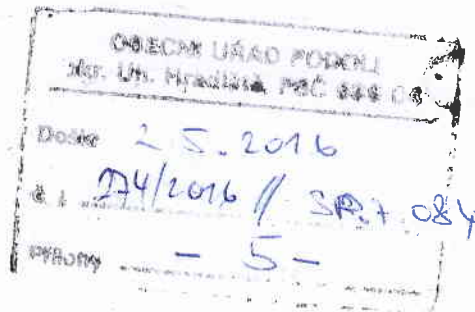 OBECNÍ ÚŘAD PODOLÍ
okr. Uh. Hradiště, PSČ 686 0
Došlo 2 5. 2016
č. j. 274/2016 //
Přílohy - 5 -